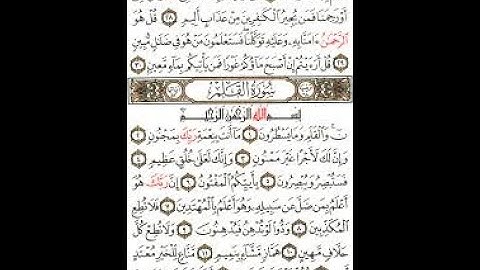 أَوْ رَحِمَنَا فَمَن يُجِيرُ ٱلْكَٰفِرِينَ مِنْ عَذَابٍ أَلِيمٍ ٢٨ قُلْ هُوَ
ٱلرَّحْمَٰنُ ءَامَنَّا بِهِۦ وَعَلَيْهِ تَوَكَّلْنَا فَسَتَعْلَمُونَ مَنْ هُوَ فِى ضَلَٰلٍ مُّبِينٍ
٢٩ قُلْ أَرَءَيْتُمْ إِنْ أَصْبَحَ مَآؤُكُمْ غَوْرًا فَمَن يَأْتِيكُم بِمَآءٍ مَّعِينٍۭ ٣٠
سُورَةُ ٱلْقَلَمِ
بِسْمِ ٱللَّهِ ٱلرَّحْمَٰنِ ٱلرَّحِيمِ
نٓ وَٱلْقَلَمِ وَمَا يَسْطُرُونَ ١ مَآ أَنتَ بِنِعْمَةِ رَبِّكَ بِمَجْنُونٍ ٢
وَإِنَّ لَكَ لَأَجْرًا غَيْرَ مَمْنُونٍ ٣ وَإِنَّكَ لَعَلَىٰ خُلُقٍ عَظِيمٍ ٤
فَسَتُبْصِرُ وَيُبْصِرُونَ ٥ بِأَييِّكُمُ ٱلْمَفْتُونُ ٦ إِنَّ رَبَّكَ هُوَ
أَعْلَمُ بِمَن ضَلَّ عَن سَبِيلِهِۦ وَهُوَ أَعْلَمُ بِٱلْمُهْتَدِينَ ٧ فَلَا تُطِعِ
ٱلْمُكَذِّبِينَ ٨ وَدُّوا۟ لَوْ تُدْهِنُ فَيُدْهِنُونَ ٩ وَلَا تُطِعْ كُلَّ
حَلَّافٍ مَّهِينٍ ١٠ هَمَّازٍ مَّشَّآءٍۭ بِنَمِيمٍ ١١ مَّنَّاعٍ لِّلْخَيْرِ مُعْتَدٍ